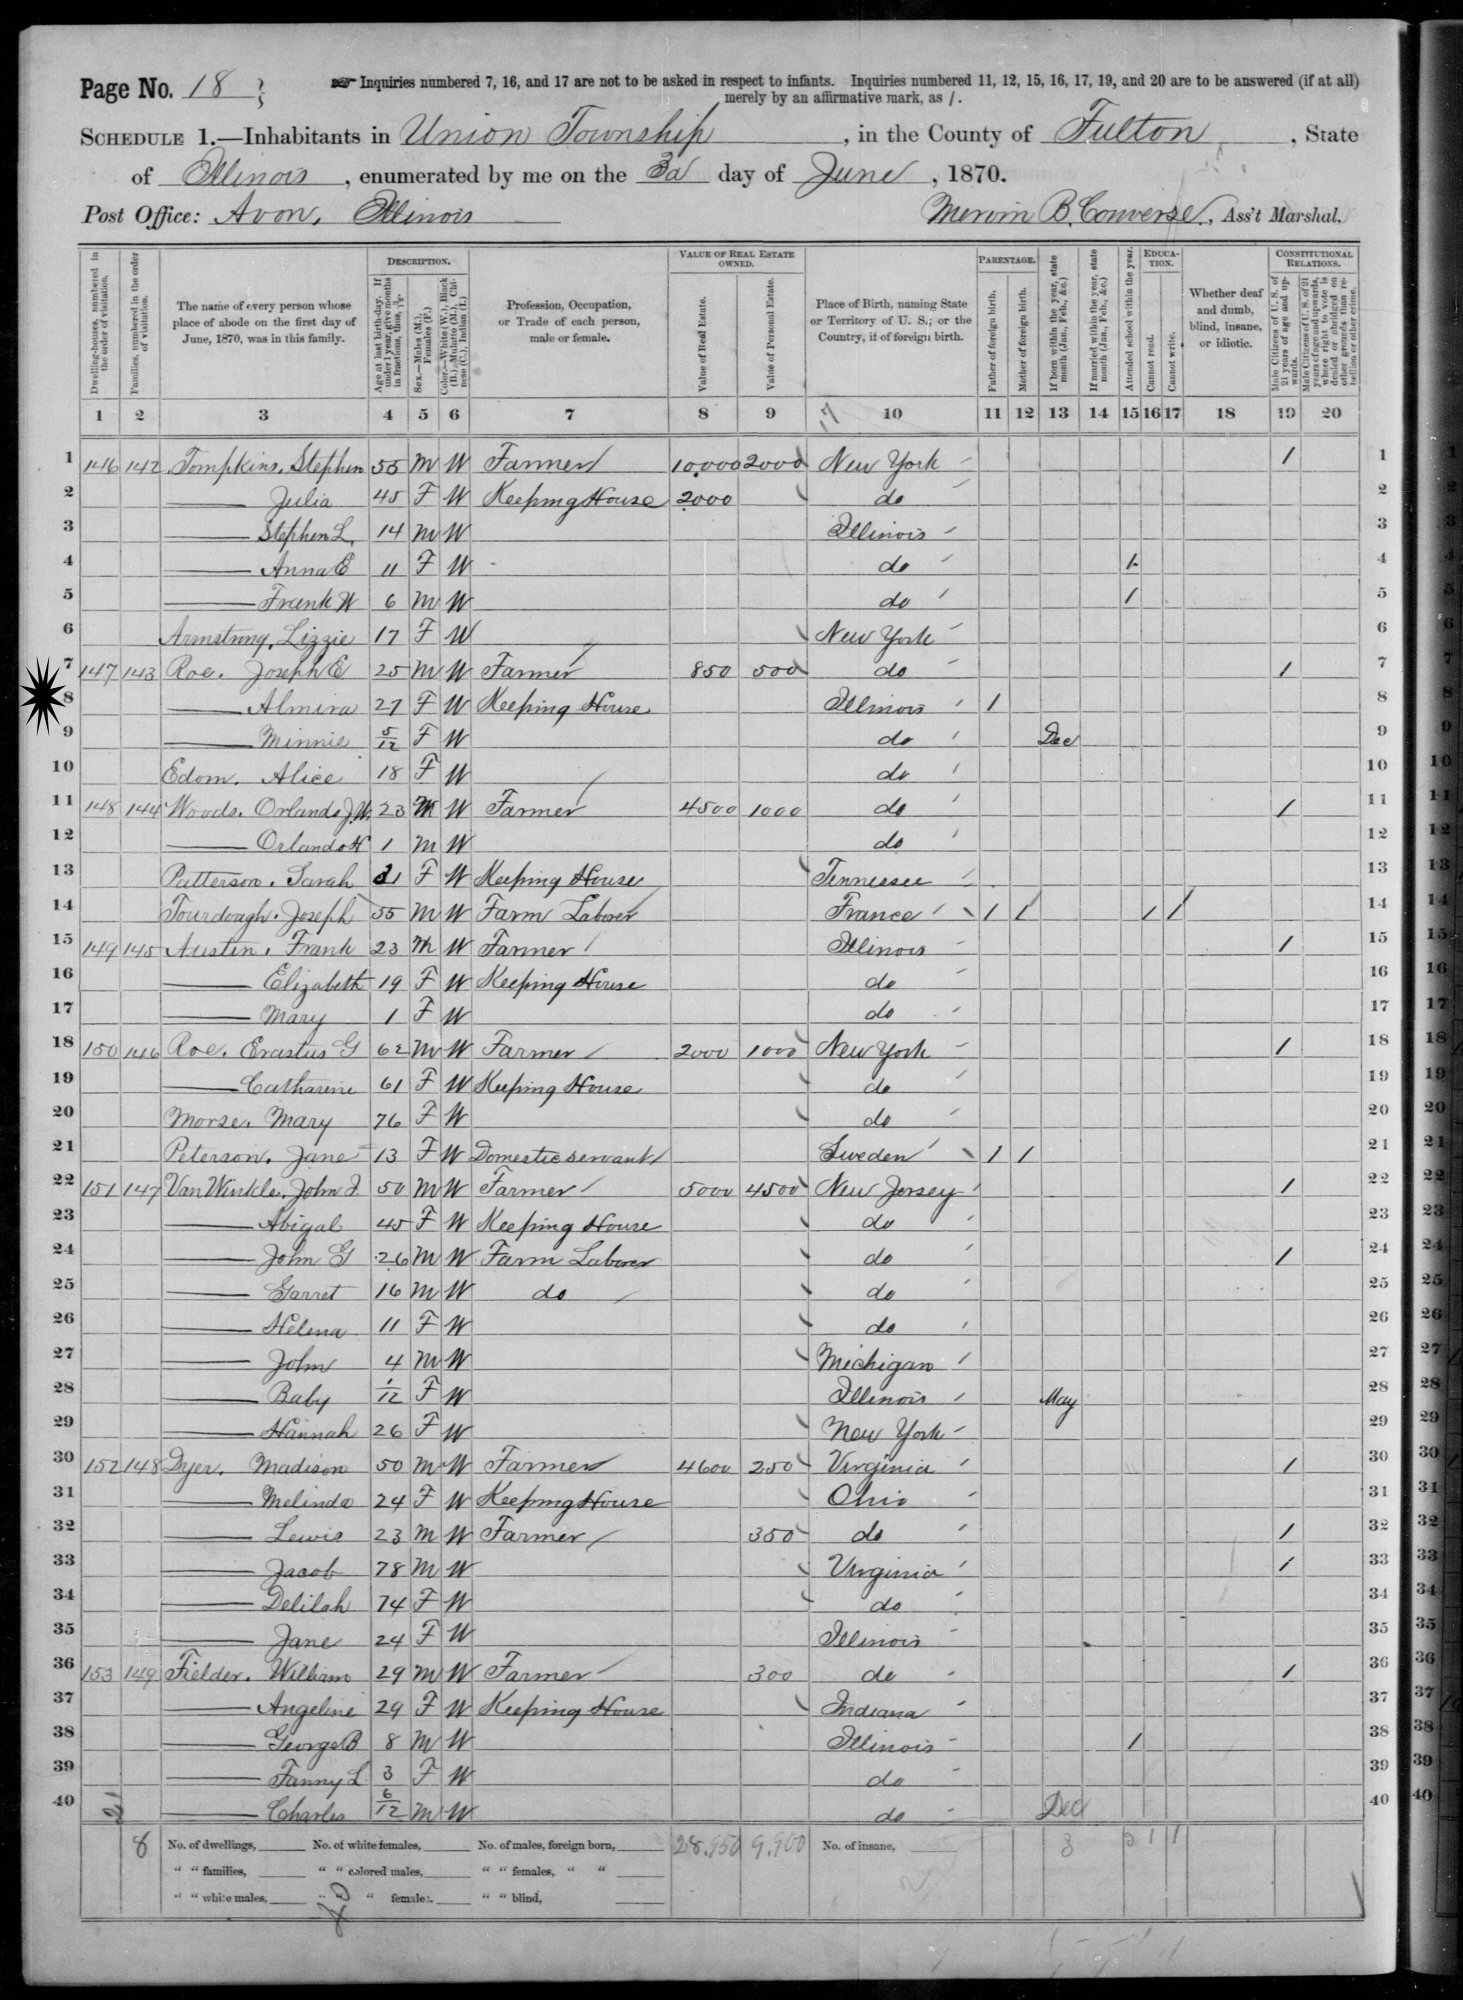 Page No. 18
Inquiries numbered 7, 16, and 17 are not to be asked in respect to infants. Inquiries numbered 11, 12, 15, 16, 17, 19, and 20 are to be answered (if at all)
merely by an affirmative mark, as /.
SCHEDULE 1.—Inhabitants in Union Township, in the County of Fulton, State
of Illinois, enumerated by me on the 3d day of June, 1870.
Post Office: Avon, Illinois Mervin B. Converse, Ass't Marshal.
DESCRIPTION. VALUE OF REAL ESTATE OWNED. PARENTAGE. EDUCATION. CONSTITUTIONAL RELATIONS.
Dwelling-houses, numbered in the order of visitation.
Families, numbered in the order of visitation.
The name of every person whose place of abode on the first day of June, 1870, was in this family.
Age at last birth-day. If under 1 year, give months in fractions, thus, 3/12
Sex.—Males (M.), Females (F.)
Color.—White (W.), Black (B.), Mulatto (M.), Chinese (C.), Indian (I.)
Profession, Occupation, or Trade of each person, male or female.
Value of Real Estate.
Value of Personal Estate.
Place of Birth, naming State or Territory of U. S.; or the Country, if of foreign birth.
Father of foreign birth.
Mother of foreign birth.
If born within the year, state month (Jan., Feb., &c.)
If married within the year, state month (Jan., Feb., &c.)
Attended school within the year.
Cannot read.
Cannot write.
Whether deaf and dumb, blind, insane, or idiotic.
Male Citizens of U. S. of 21 years of age and upwards.
Male Citizens of U. S. of 21 years of age and upwards, whose right to vote is denied or abridged on other grounds than rebellion or other crime.
1 2 3 4 5 6 7 8 9 17 10 11 12 13 14 15 16 17 18 19 20
1 146 142 Tompkins, Stephen 55 M W Farmer 10,000 2000 New York / 1
2 Julia 45 F W Keeping House 2000 do 2
3 Stephen L. 14 M W Illinois 3
4 Anna E 11 F W do 1 4
5 Frank W 6 M W do 1 5
6 Armstrong, Lizzie 17 F W New York 6
7 147 143 Roe. Joseph E 25 M W Farmer 850 500 do / 7
8 Almira 27 F W Keeping House Illinois / 8
9 Minnie 5/12 F W do Dec 9
10 Edom. Alice 18 F W do 10
11 148 144 Woods. Orlando J.W. 23 M W Farmer 4500 1000 do / 11
12 Orlando H 1 M W do 12
13 Patterson. Sarah F W Keeping House Tennessee 13
14 Joseph 55 M W Farm Laborer France / / / / 14
15 149 145 Austin. Frank 23 M W Farmer Illinois / 15
16 Elizabeth 19 F W Keeping House do 16
17 Mary 1 F W do 17
18 150 146 Roe. Erastus G 62 M W Farmer 2000 1000 New York / 18
19 Catharine 61 F W Keeping House do 19
20 Morse. Mary 76 F W do 20
21 Peterson. Jane 13 F W Domestic servant Sweden / / 21
22 151 147 Van Winkle. John J. 50 M W Farmer 5000 4500 New Jersey / 22
23 Abigal 45 F W Keeping House do 23
24 John G 26 M W Farm Laborer do / 24
25 Garret 16 M W do do 25
26 Helena 11 F W do 26
27 John 4 M W Michigan 27
28 Baby 1/12 F W Illinois May 28
29 Hannah 26 F W New York 29
30 152 148 Dyer. Madison 50 M W Farmer 4600 250 Virginia / 30
31 Melinda 24 F W Keeping House Ohio 31
32 Lewis 23 M W Farmer 350 do / 32
33 Jacob 78 M W Virginia / 33
34 Delilah 74 F W do 34
35 Jane 24 F W Illinois 35
36 153 149 Fielder. William 29 M W Farmer 300 do / 36
37 Angeline 29 F W Keeping House Indiana 37
38 George B 8 M W Illinois 1 38
39 Fanny L 3 F W do 39
40 Charles 6/12 M W do Dec 40
8 No. of dwellings, No. of white females, No. of males, foreign born, 28,950 9,900 No. of insane, 3 1 1
" " families, " " colored males, " " females, " "
" " white males, " " females, " " blind,